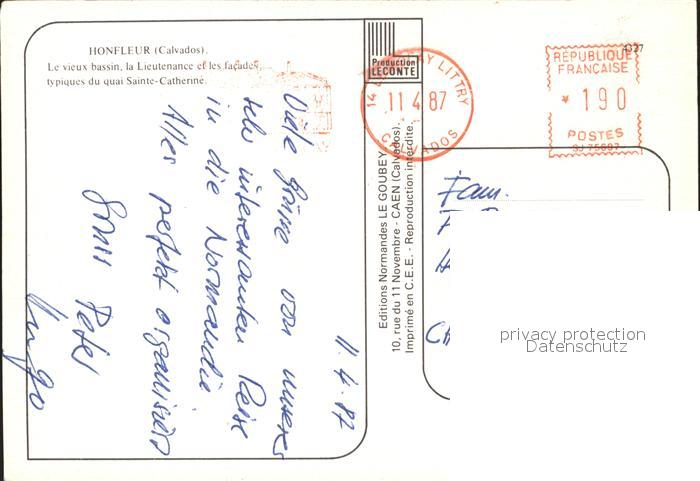 HONFLEUR (Calvados).
Le vieux bassin, la Lieutenance et les façades
typiques du quai Sainte-Catherine.
Production
LECONTE
14 LITTRY
11 4 87
CALVADOS
4327
RÉPUBLIQUE
FRANÇAISE
* 190
POSTES
SJ 75607
Editions Normandes LE GOUBEY
10, rue du 11 Novembre - CAEN (Calvados).
Imprimé en C.E.E. - Reproduction interdite.
11.4.87
Viele Grüsse von unserer
sehr interessanten Reise
in die Normandie
Alles perfekt organisiert
Gruss Peter
Fam.
privacy protection
Datenschutz